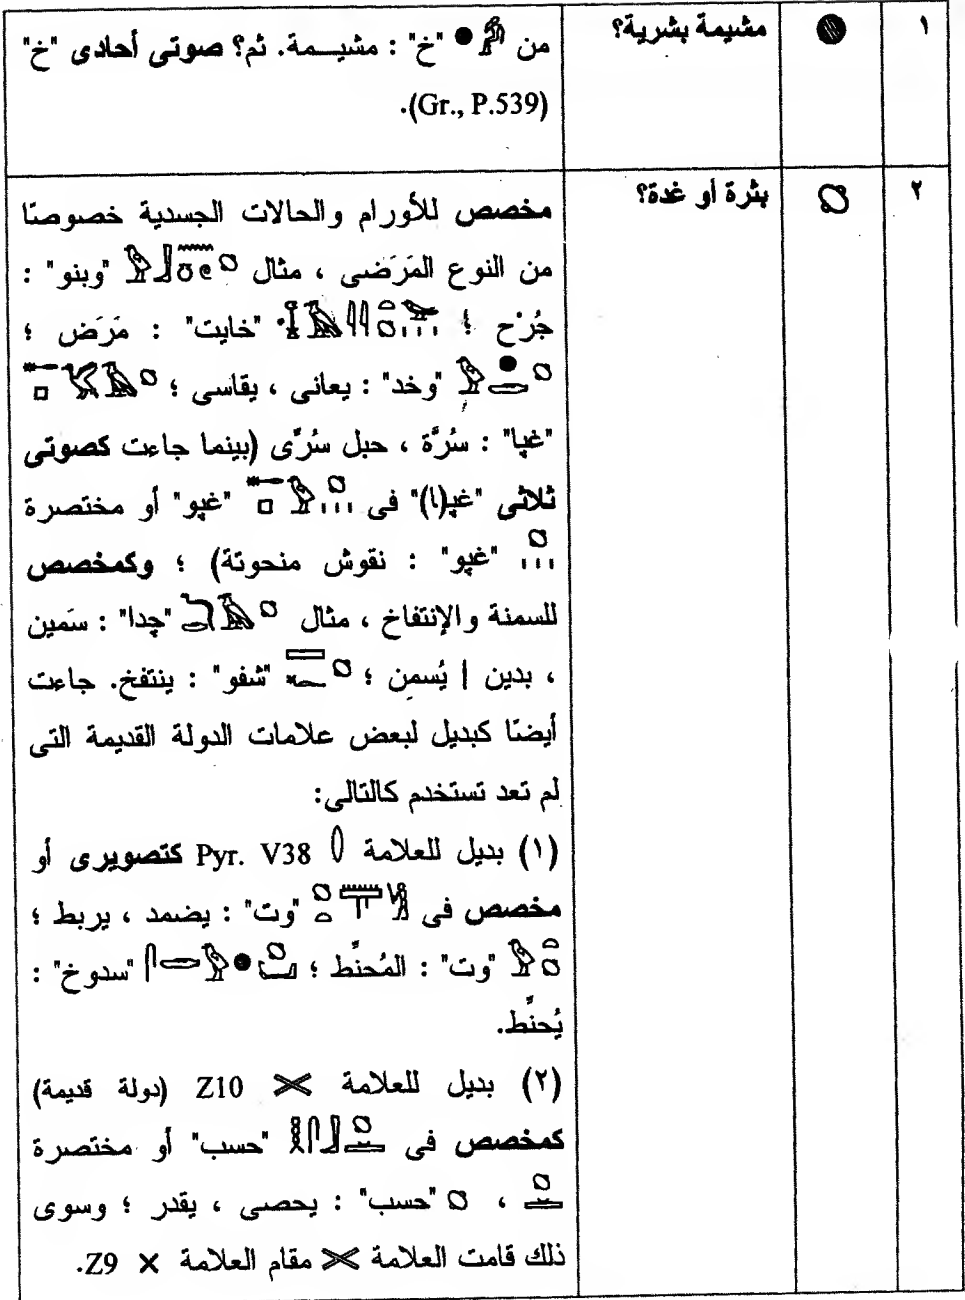 ١ مشيمة بشرية؟ من "خ" : مشيـــمة. ثم؟ صوتى أحادى "خ"
(Gr., P.539).
٢ بثرة أو غدة؟ مخصص للأورام والحالات الجسدية خصوصًا
من النوع المَرَضى ، مثال "وبنو" :
جُرْح ؛ "خايت" : مَرَض ؛
"وخد" : يعانى ، يقاسى ؛
"غپا" : سُرَّة ، حبل سُرِّى (بينما جاءت كصوتى
ثلاثى "غپ(ا)" فى "غپو" أو مختصرة
"غپو" : نقوش منحوتة) ؛ وكمخصص
للسمنة والإنتفاخ ، مثال "چدا" : سَمين
، بدين | يُسمن ؛ "شفو" : ينتفخ. جاءت
أيضًا كبديل لبعض علامات الدولة القديمة التى
لم تعد تستخدم كالتالى:
(١) بديل للعلامة Pyr. V38 كتصويرى أو
مخصص فى "وت" : يضمد ، يربط ؛
"وت" : المُحنِّط ؛ "سدوخ" :
يُحنِّط.
(٢) بديل للعلامة Z10 (دولة قديمة)
كمخصص فى "حسب" أو مختصرة
، "حسب" : يحصى ، يقدر ؛ وسوى
ذلك قامت العلامة مقام العلامة Z9.